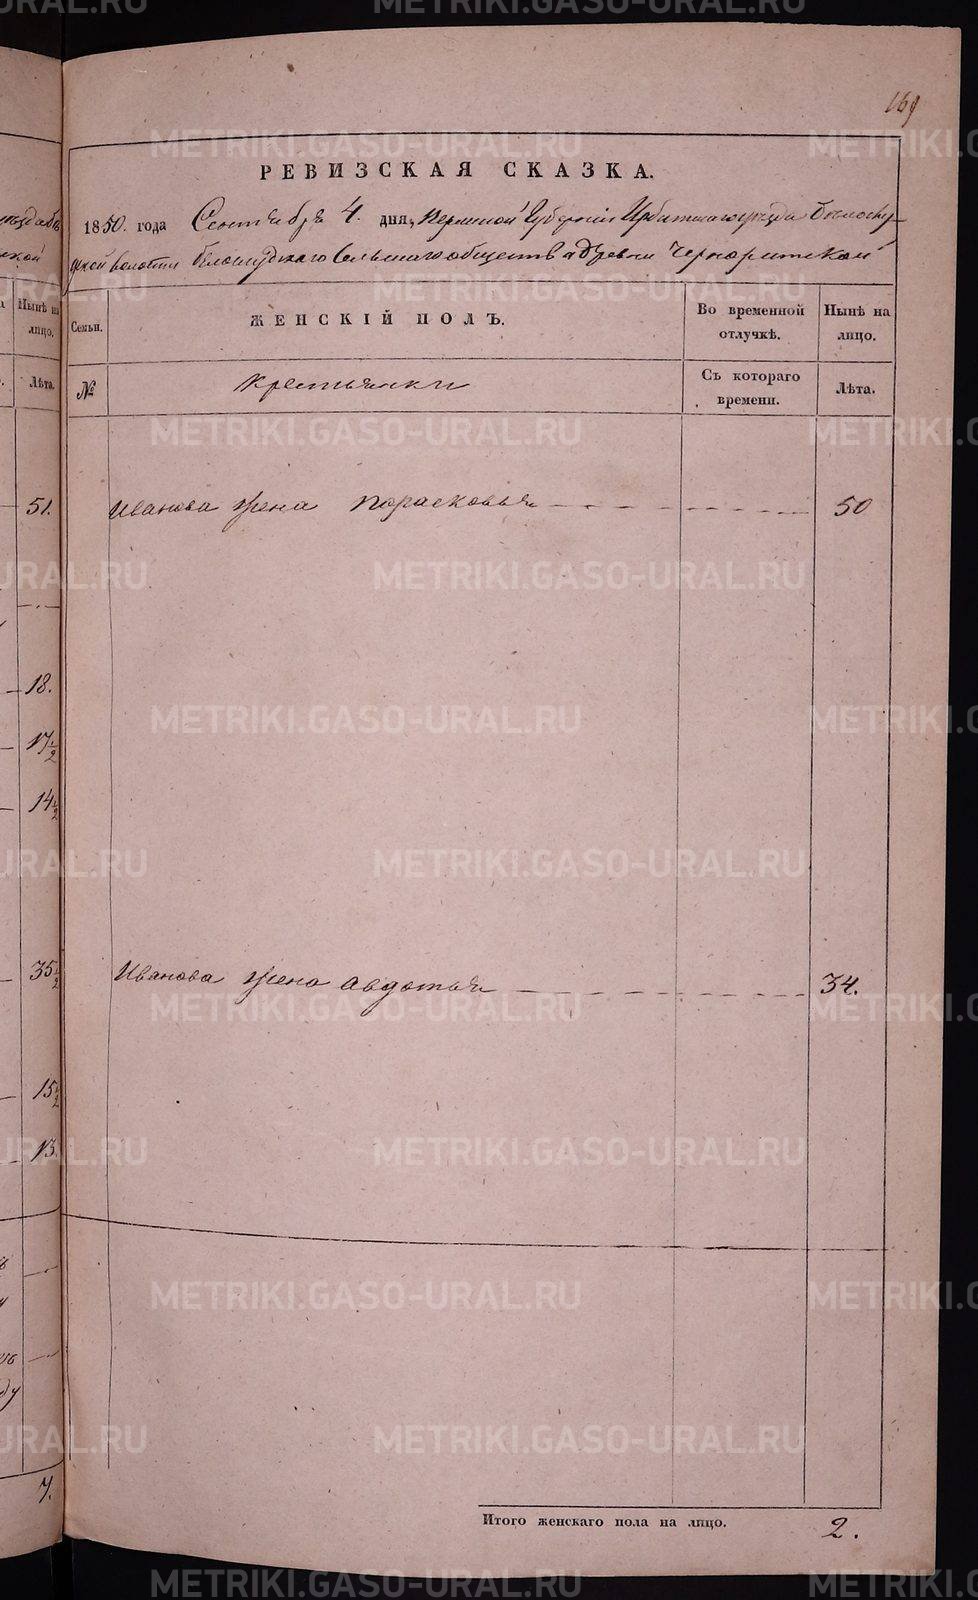 169
РЕВИЗСКАЯ СКАЗКА.
1850. года Сентября 4. дня, Пермской Губерніи Ирбитскаго уѣзда Бѣлослу-
дской волости Бѣлослудскаго сельскаго общества деревни Черноритской
Семьи.
ЖЕНСКІЙ ПОЛЪ.
Во временной
отлучкѣ.
Нынѣ на
лицо.
№
Крестьянки
Съ котораго
времени.
Лѣта.
Иванова жена Порасковья 50
Иванова жена Авдотья 34.
Итого женскаго пола на лицо. 2.
Нынѣ на
лицо.
Лѣта.
51.
18.
17 1/2
14 1/2
35 1/2
15 1/2
13.
7.
METRIKI.GASO-URAL.RU